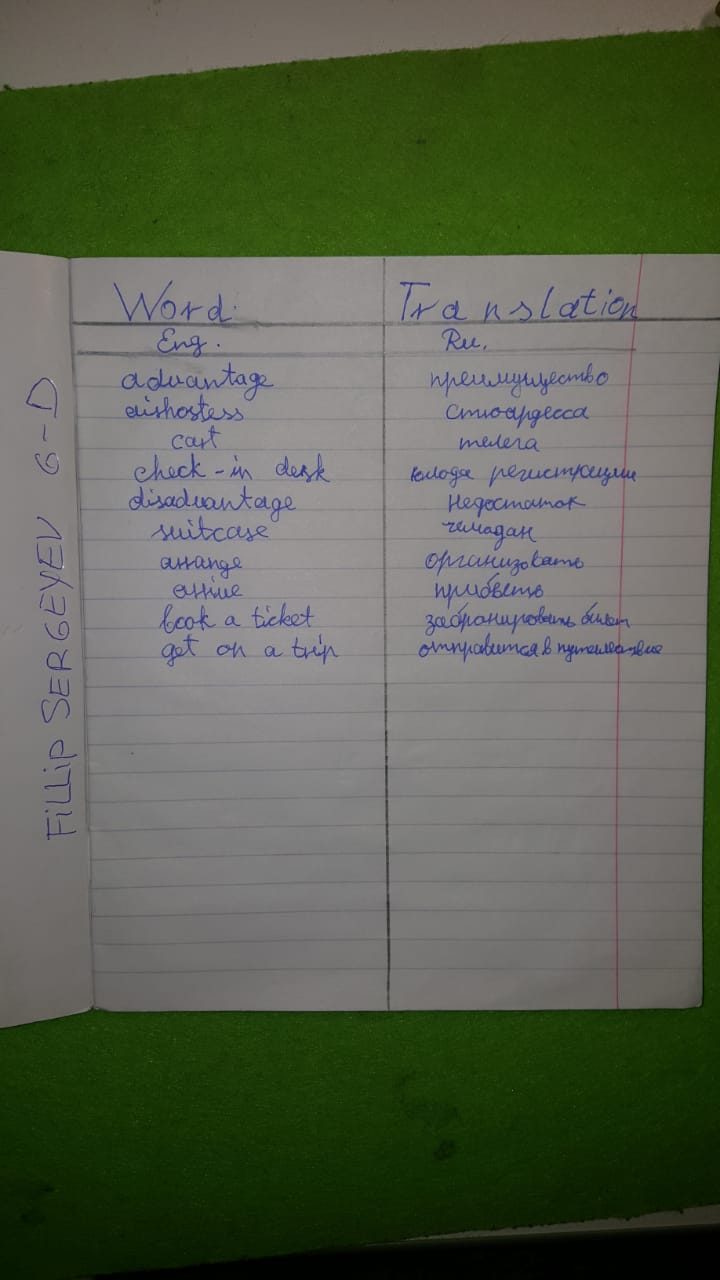 Word. Translation
Eng. Ru.
advantage преимущество
airhostess стюардесса
cart телега
check-in desk регистрации
disadvantage недостаток
suitcase чемодан
arrange организовать
arrive прибыть
book a ticket забронировать билет
get on a trip отправится в путешествие
Fillip SERGEYEV 6-D